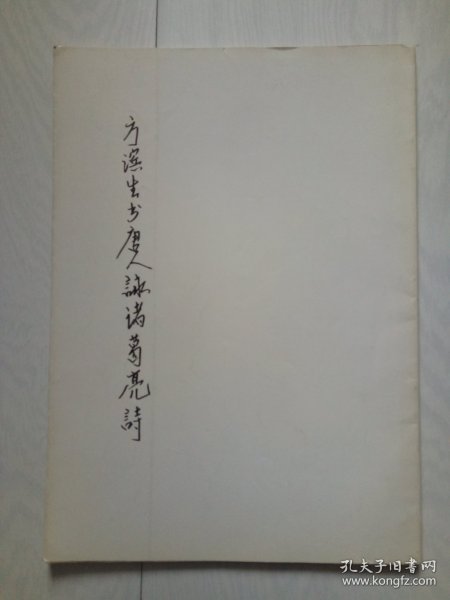 方滨生书唐人詠诸葛亮詩
孔夫子旧书网
www.kongfz.com